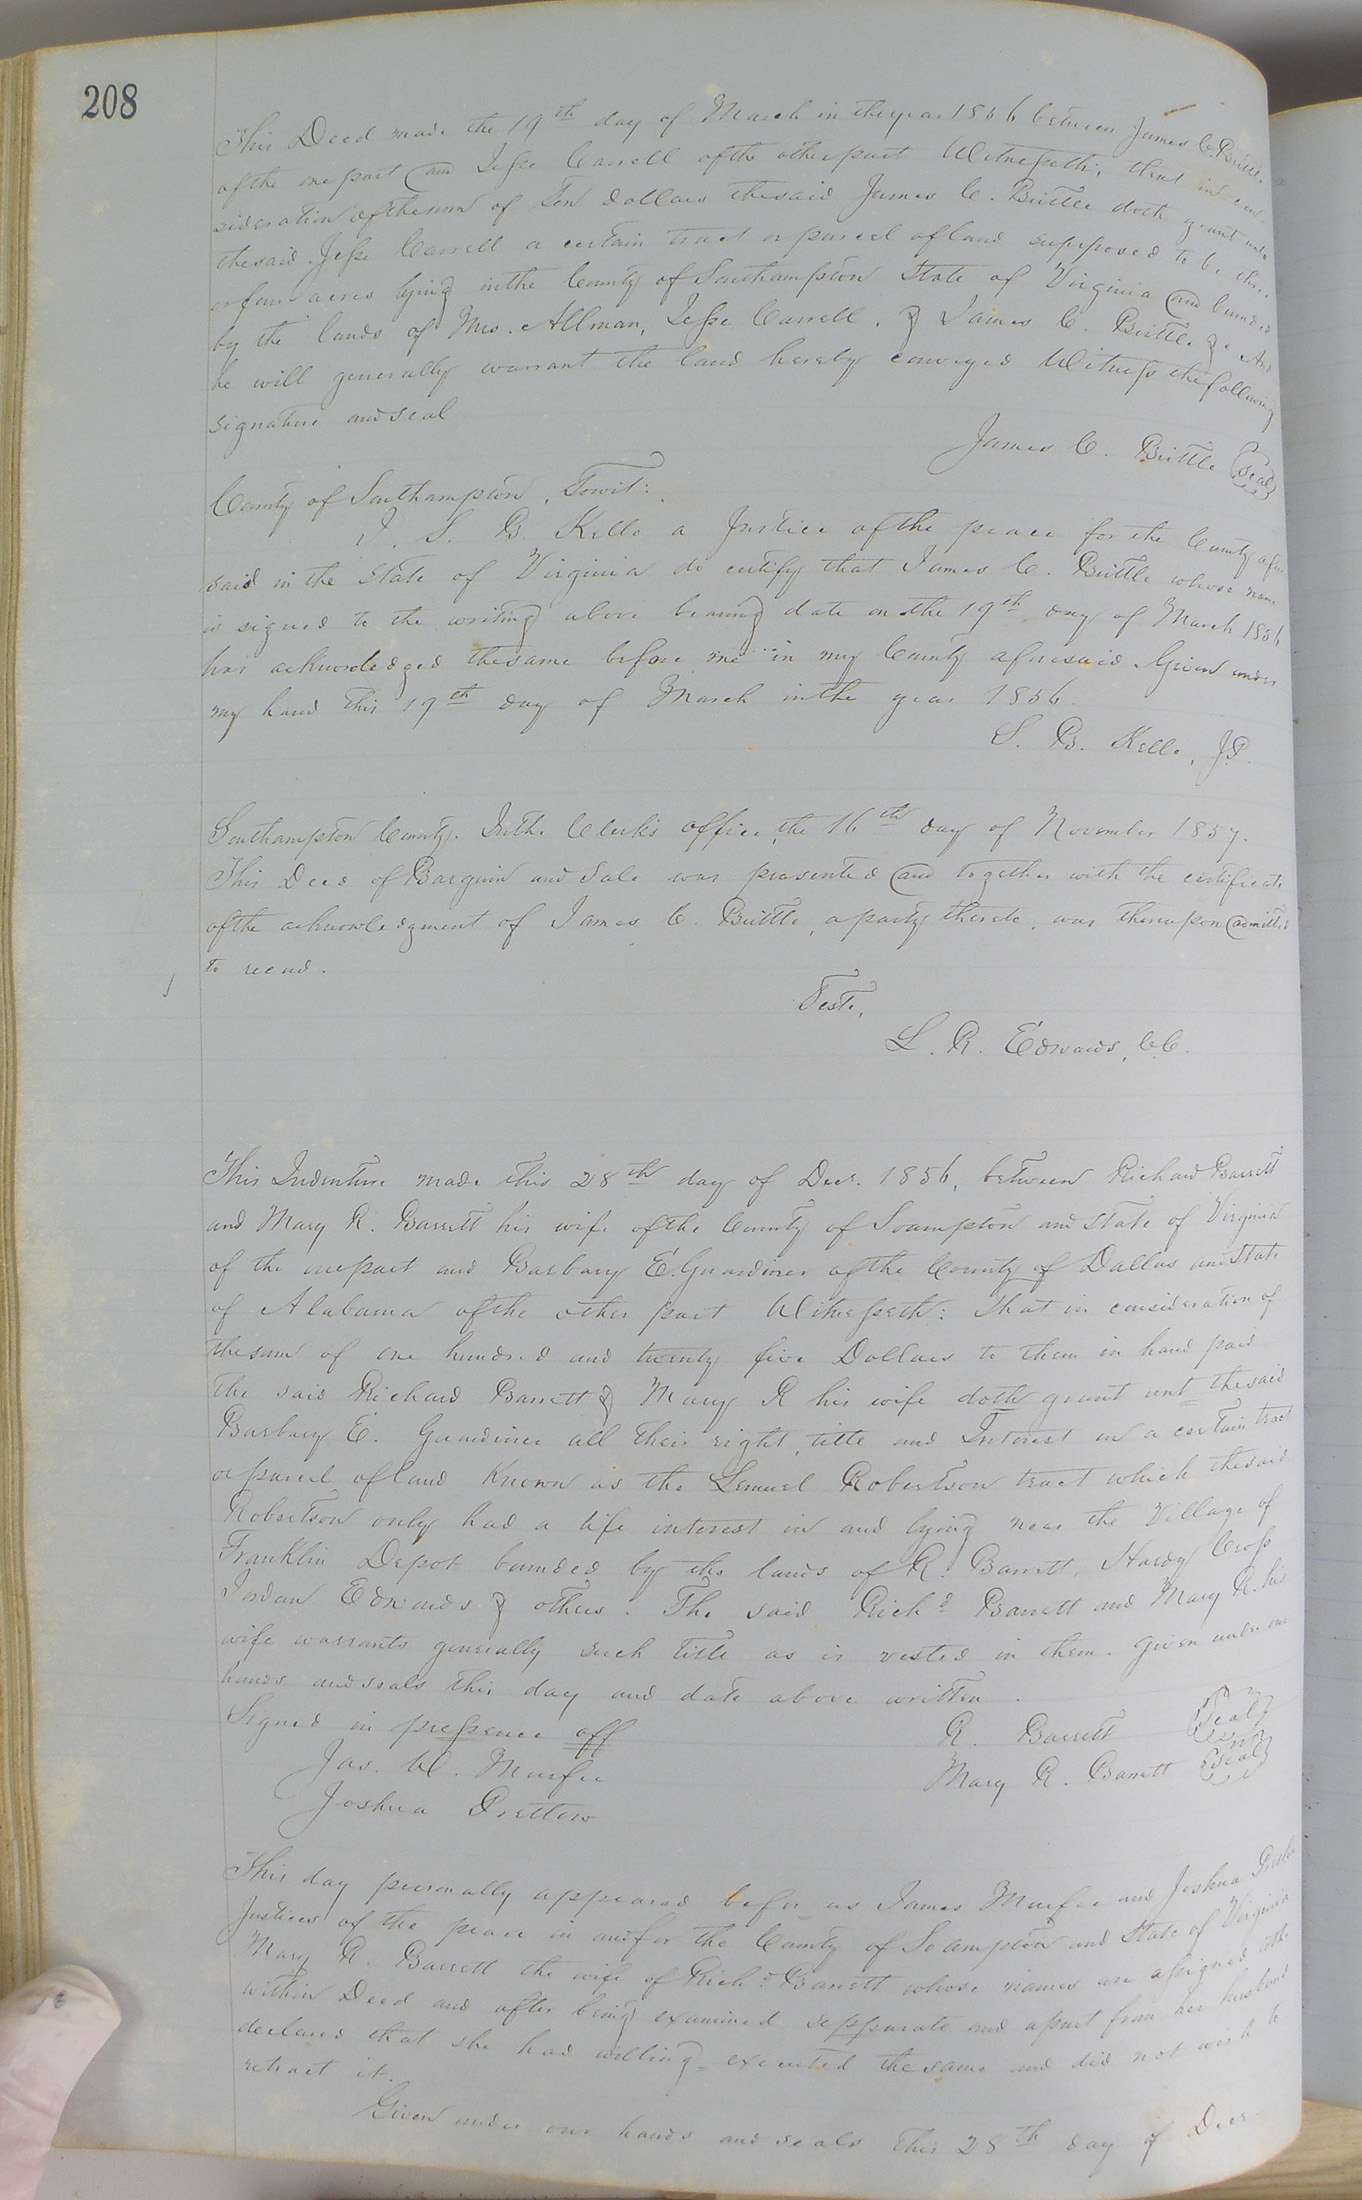 208
This Deed made the 19th day of March in the year 1856 between James C. Brittle
of the one part and Jesse Carrell of the other part Witnesseth; that in con-
sideration of the sum of Ten dollars the said James C. Brittle doth grant unto
the said Jesse Carrell a certain tract or parcel of land supposed to be three
or four acres lying in the County of Southampton State of Virginia and bounded
by the lands of Mrs. Allman, Jesse Carrell, & James C. Brittle &c And
he will generally warrant the land hereby conveyed Witness the following
signature and seal
James C. Brittle (Seal)
County of Southampton, Towit:
I, S. B. Kello a Justice of the peace for the County afore
said in the State of Virginia do certify that James C. Brittle whose name
is signed to the writing above bearing date on the 19th day of March 1856
has acknowledged the same before me in my County aforesaid. Given under
my hand this 19th day of March in the year 1856.
S. B. Kello, J.P.
Southampton County. In the Clerk's office, the 16th day of November 1857.
This Deed of Bargain and Sale was presented and together with the certificate
of the acknowledgment of James C. Brittle, a party thereto, was thereupon admitted
to record.
Teste,
L. R. Edwards, C.C.
This Indenture made this 28th day of Decr. 1856, between Richard Barrett
and Mary R. Barrett his wife of the County of Soampton and State of Virginia
of the onepart and Barbary E. Guardiner of the County of Dallas and State
of Alabama of the other part Witnesseth: that in consideration of
the sum of one hundred and twenty five Dollars to them in hand paid
the said Richard Barrett & Mary R his wife doth grant unt the said
Barbary E. Guardiner all their right, title and Interest in a certain tract
or parcel of land Known as the Lemuel Robertson tract which the said
Robertson only had a life interest in and lying near the Village of
Franklin Depot bounded by the lands of R. Barrett, Hardy Cross
Jordan Edwards & others. The said Richd Barrett and Mary R. his
wife warrants generally such title as is vested in them. Given under our
hands and seals this day and date above written.
Signed in pressence off
R. Barrett (Seal)
Jas. W. Murfee
Mary R. Barrett (Seal)
Joshua Pretlow
This day personally appeared before us James Murfee and Joshua Pretlow
Justices of the peace in and for the County of Soampton and State of Virginia
Mary R. Barrett the wife of Richd Barrett whose names are assigned to the
within Deed and after being examined sepparate and apart from her husband
declared that she had willing executed the same and did not wish to
retract it.
Given under our hands and seals this 28th day of Decr.